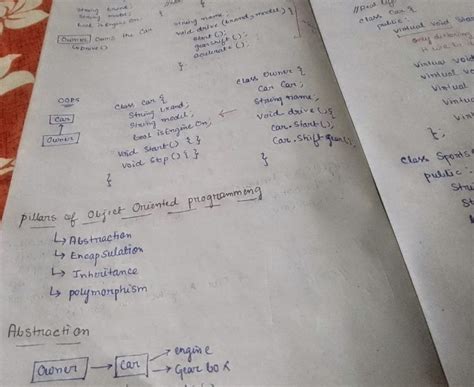 string brand;
string model;
bool is Engine On;
Owner owns the Car
string name;
void drive (brand, model) {
start ();
gearshift ();
accelerate ();
}
OOPS
Car
Owner
class Car {
String brand;
String model;
bool is Engine On;
void Start () { }
void Stop () { }
}
class Owner {
Car Car;
String name;
void drive () {
car. Start ();
Car. Shift gear ();
}
pillars of Object Oriented programming
↳ Abstraction
↳ Encapsulation
↳ Inheritance
↳ polymorphism
Abstraction
Owner → Car → engine
→ Gear box
class Car {
public :
virtual void
virtual void
virtual
virtual
};
class Sports
public :